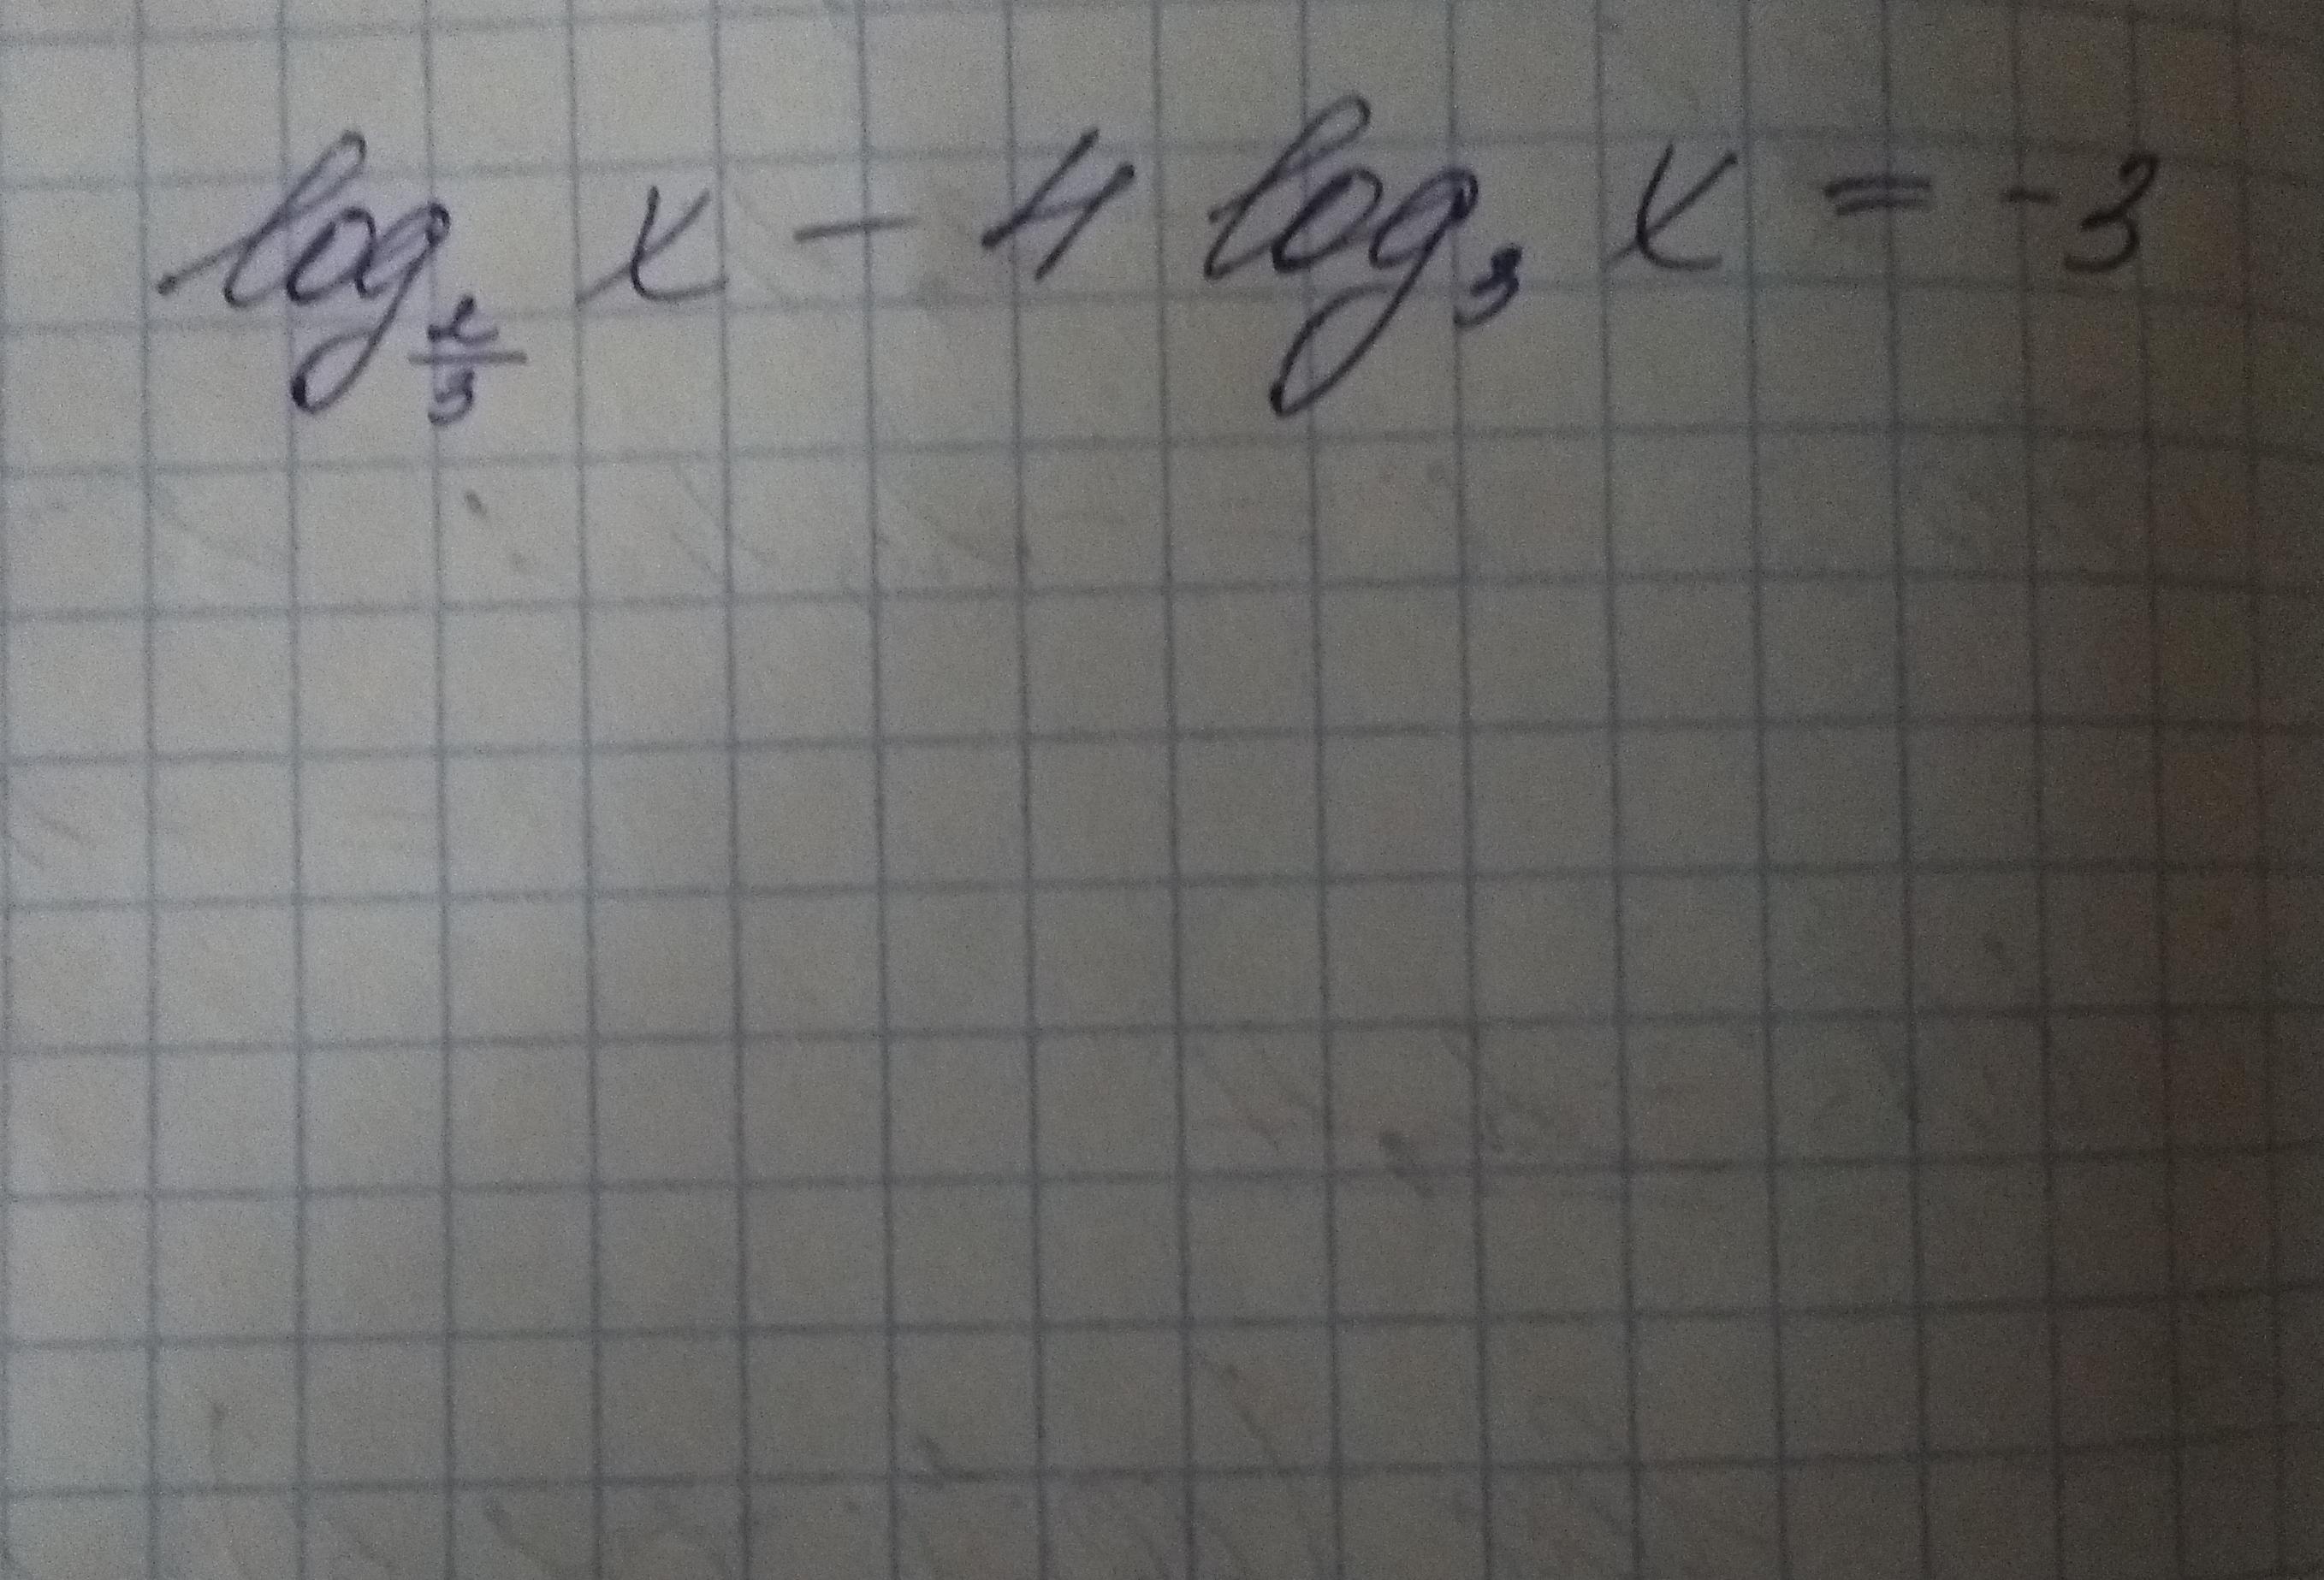 log_{\frac{2}{3}} x - 4 log_3 x = -3